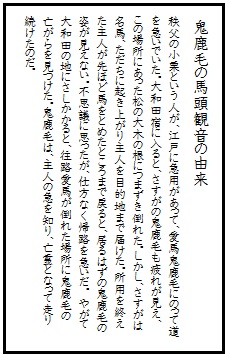 鬼鹿毛の馬頭観音の由来
秩父の小栗という人が、江戸に急用があって、愛馬鬼鹿毛にのって道
を急いでいた。大和田宿に入ると、さすがの鬼鹿毛も疲れが見え、
この場所にあった松の大木の根につまずき倒れた。しかし、さすがは
名馬、ただちに起き上がり主人を目的地まで届けた。所用を終え
た主人が先ほど馬をとめたところまで戻ると、居るはずの鬼鹿毛の
姿が見えない。不思議に思ったが、仕方なく帰路を急いだ。やがて
大和田の地にさしかかると、往路愛馬が倒れた場所に鬼鹿毛の
亡がらを見つけた。鬼鹿毛は、主人の急を知り、亡霊となって走り
続けたのだ。